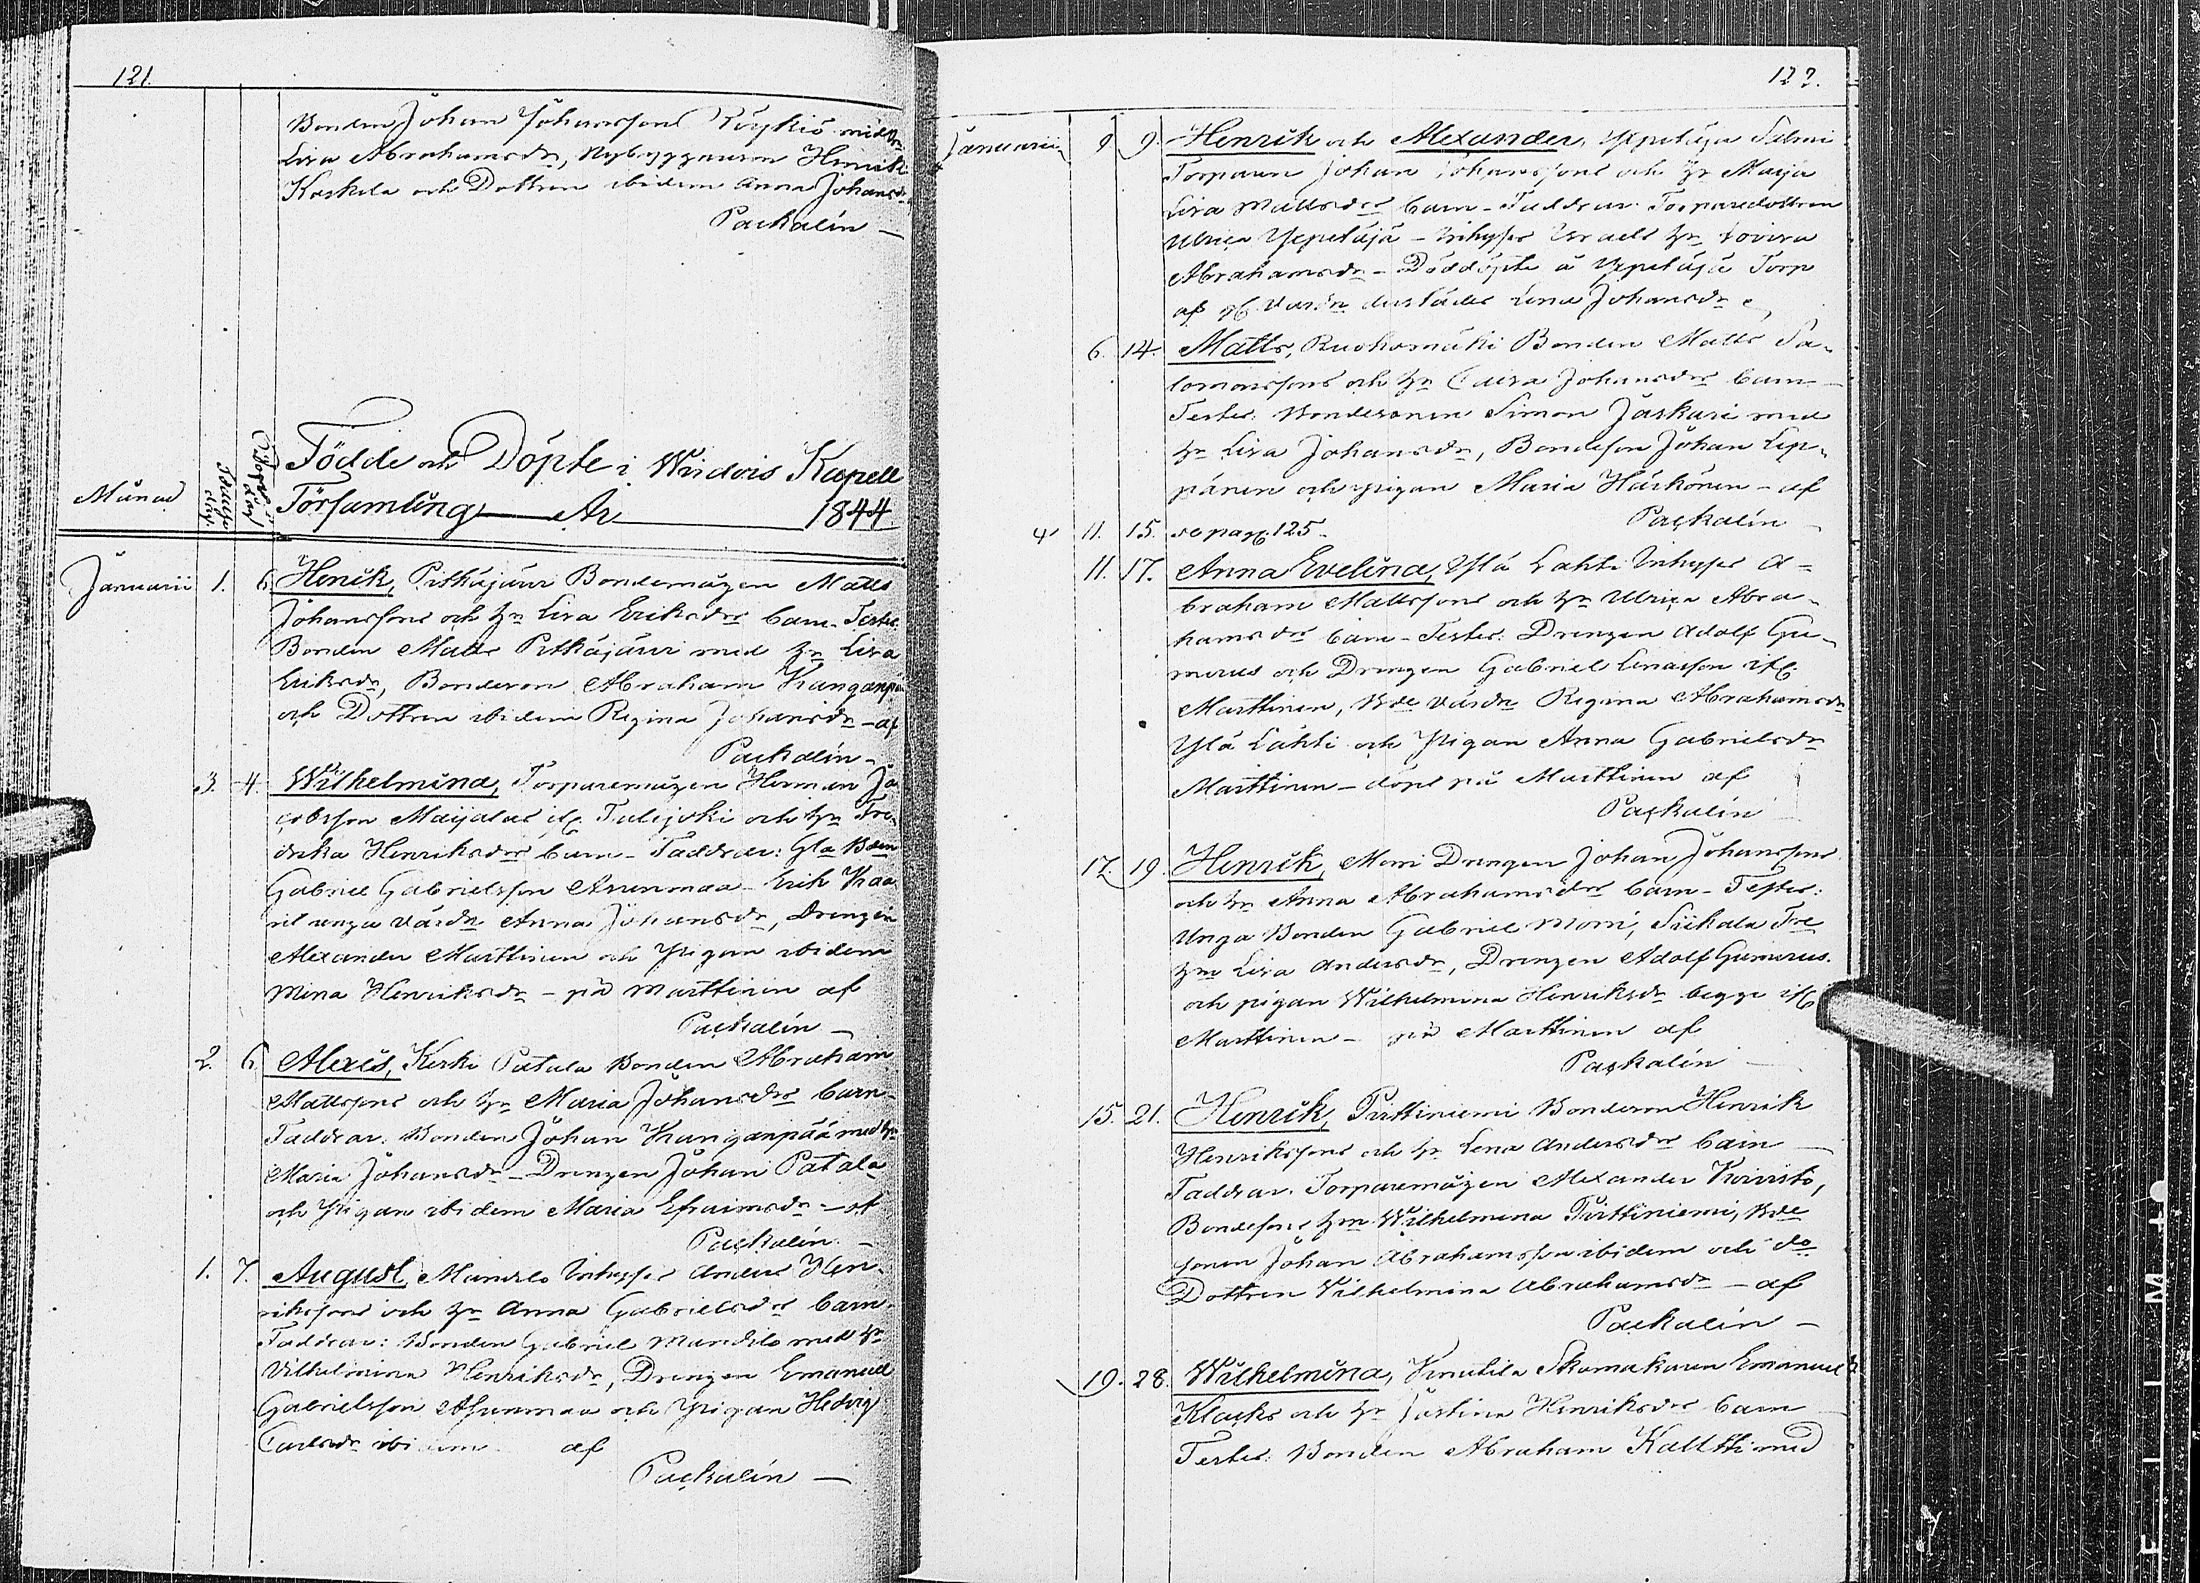 121.
Bonden Johan Johanssons Köykiö med hu
Lisa Abrahamsdr, Nybyggaren Henrik
Koskela och Dottren ibidem Anna Johansdr
Packalén —
Månad
Födelse dag
Döpelse dag
Födde och Döpte i Windois Kapell
Församling År 1844
Januarii 1. 6. Henrik, Pitkäjärvi Bondemågen Matts
Johanssons och hu Lisa Eriksdrs barn. Testes
Bonden Matts Pitkäjärvi med hu Lisa
Eriksdr, Bondeson Abraham Kanganpää
och Dottren ibidem Regina Johansdr - af
Packalén -
3. 4. Wilhelmina, Torparemågen Herman Ja
cobsson Maijalas och hu Fre
drika Henriksdrs barn - Faddrar: Gla Bden
Gabriel Gabrielsson Asunmaa - Erik
unga värdn Anna Johansdr, Drengen
Alexander Marttinen och Pigan ibidem
Mina Henriksdr - på Marttinen af
Packalén -
2. 6. Alexis, Keski Patala Bonden Abraham
Mattssons och hu Maria Johansdrs barn -
Faddrar. Bonden Johan Kanganpää med hu
Maria Johansdr - Drengen Johan Patala
och Pigan ibidem Maria Efraimsdr - af
Packalén. -
1. 7. August, Mandelo Inhyses Anders Hen-
rikssons och hu Anna Gabrielsdrs barn -
Faddrar: Bonden Gabriel Mandelo med hu
Vilhelmina Henriksdr, Drengen Emanuel
Gabrielsson Asunmaa och Pigan Hedvig
Carlsdr ibidem af
Packalén —
122.
Januarii 9. Henrik och Alexander, Yxpetäjä Salmi
Torparen Johan Johanssons och hu Maija
Lisa Mattsdrs barn - Faddrar. Torparedottren
Ulrica Yxpetäjä - Inhyses Israels hu Lovisa
Abrahamsdr - Döddöpte å Yxpetäjä Torp
af värdn derstädes Lena Johansdr
6. 14. Matts, Ruohomäki Bonden Matts Sa-
lomonssons och hu Caisa Johansdrs barn -
Testes: Bondesonen Simon Jaskari med
hu Lisa Johansdr, Bondeson Johan Lep-
pänen och pigan Maria Härkönen - af
Packalén -
11. 15. se pag. 125 -
11. 17. Anna Evelina, Ylä Lahti Inhyses A-
braham Mattssons och hu Ulrica Abra-
hamsdrs barn - Testes. Drengen Adolf Gu-
merus och Drengen Gabriel Enasson
Marttinen, Bde värdn Regina Abrahamsdr
Ylä Lahti och Pigan Anna Gabrielsdr
Marttinen - döpt på Marttinen af
Packalén
17. 19. Henrik, Morri Drengen Johan Johanssons
och hu Anna Abrahamsdrs barn - Testes:
Unga Bonden Gabriel Morri, Siikala Tre
hun Lisa Andersdr, Drengen Adolf Gumerus.
och pigan Wilhelmina Henriksdr begge
Marttinen - på Marttinen af
Packalén -
15. 21. Henrik, Pirttiniemi Bondeson Henrik
Henrikssons och hu Lena Andersdrs barn -
Faddrar. Torparemågen Alexander Koivisto,
Bondesons hun Wilhelmina Pirttiniemi, Bde
sonen Johan Abrahamsson ibidem och do
Dottren Vilhelmina Abrahamsdr - af
Packalén -
19. 28. Wilhelmina, Knuutila Skomakaren Emanuel
Klacks och hu Justina Henriksdrs barn
Testes: Bonden Abraham Kaltti med